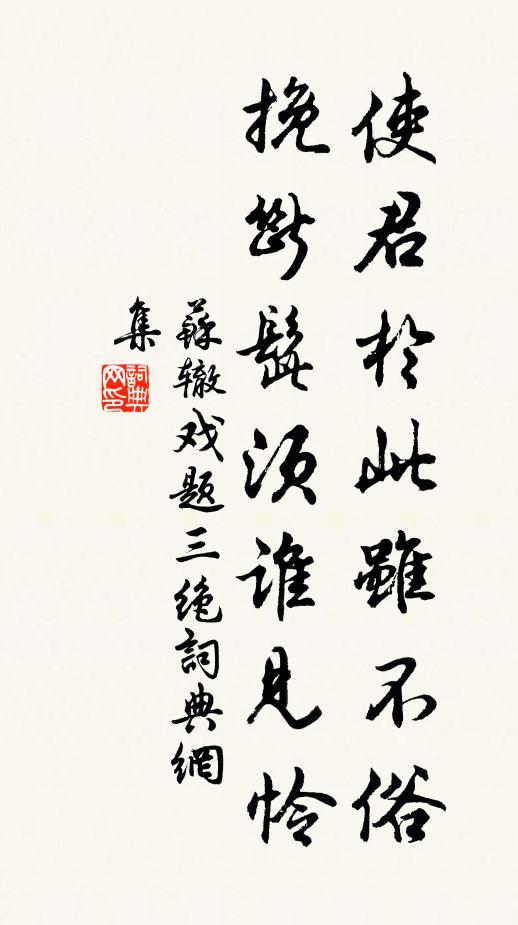 使君於此雖不俗
挽斷髭須誰見怜
蘇辙戏题三绝詞典網
集
詞典网印